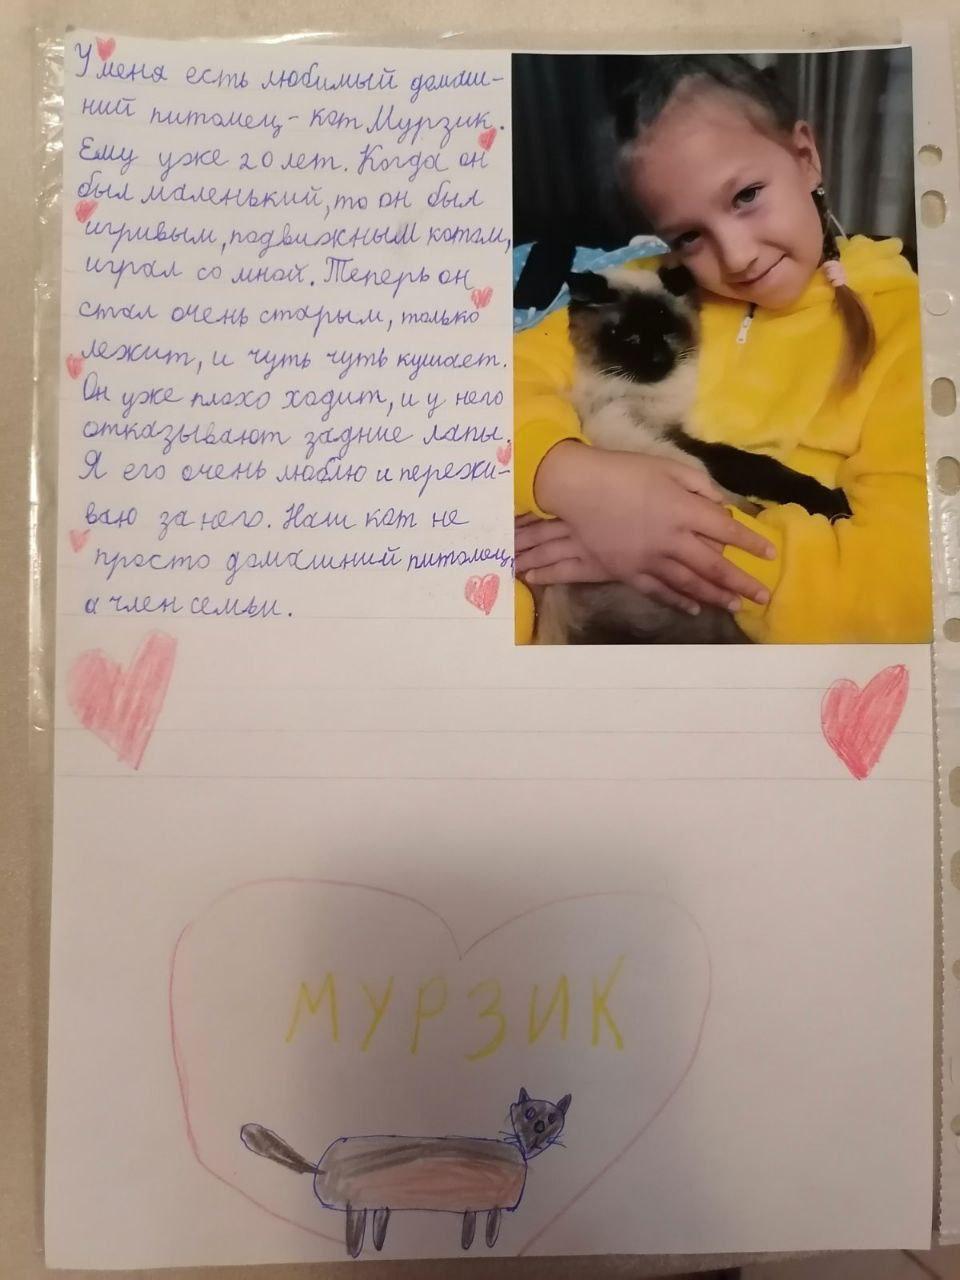 У меня есть любимый домаш-
ний питомец - кот Мурзик.
Ему уже 20 лет. Когда он
был маленький, то он был
игривым, подвижным котом,
играл со мной. Теперь он
стал очень старым, только
лежит, и чуть чуть кушает.
Он уже плохо ходит, и у него
отказывают задние лапы.
Я его очень люблю и пережи-
ваю за него. Наш кот не
просто домашний питомец,
а член семьи.
МУРЗИК